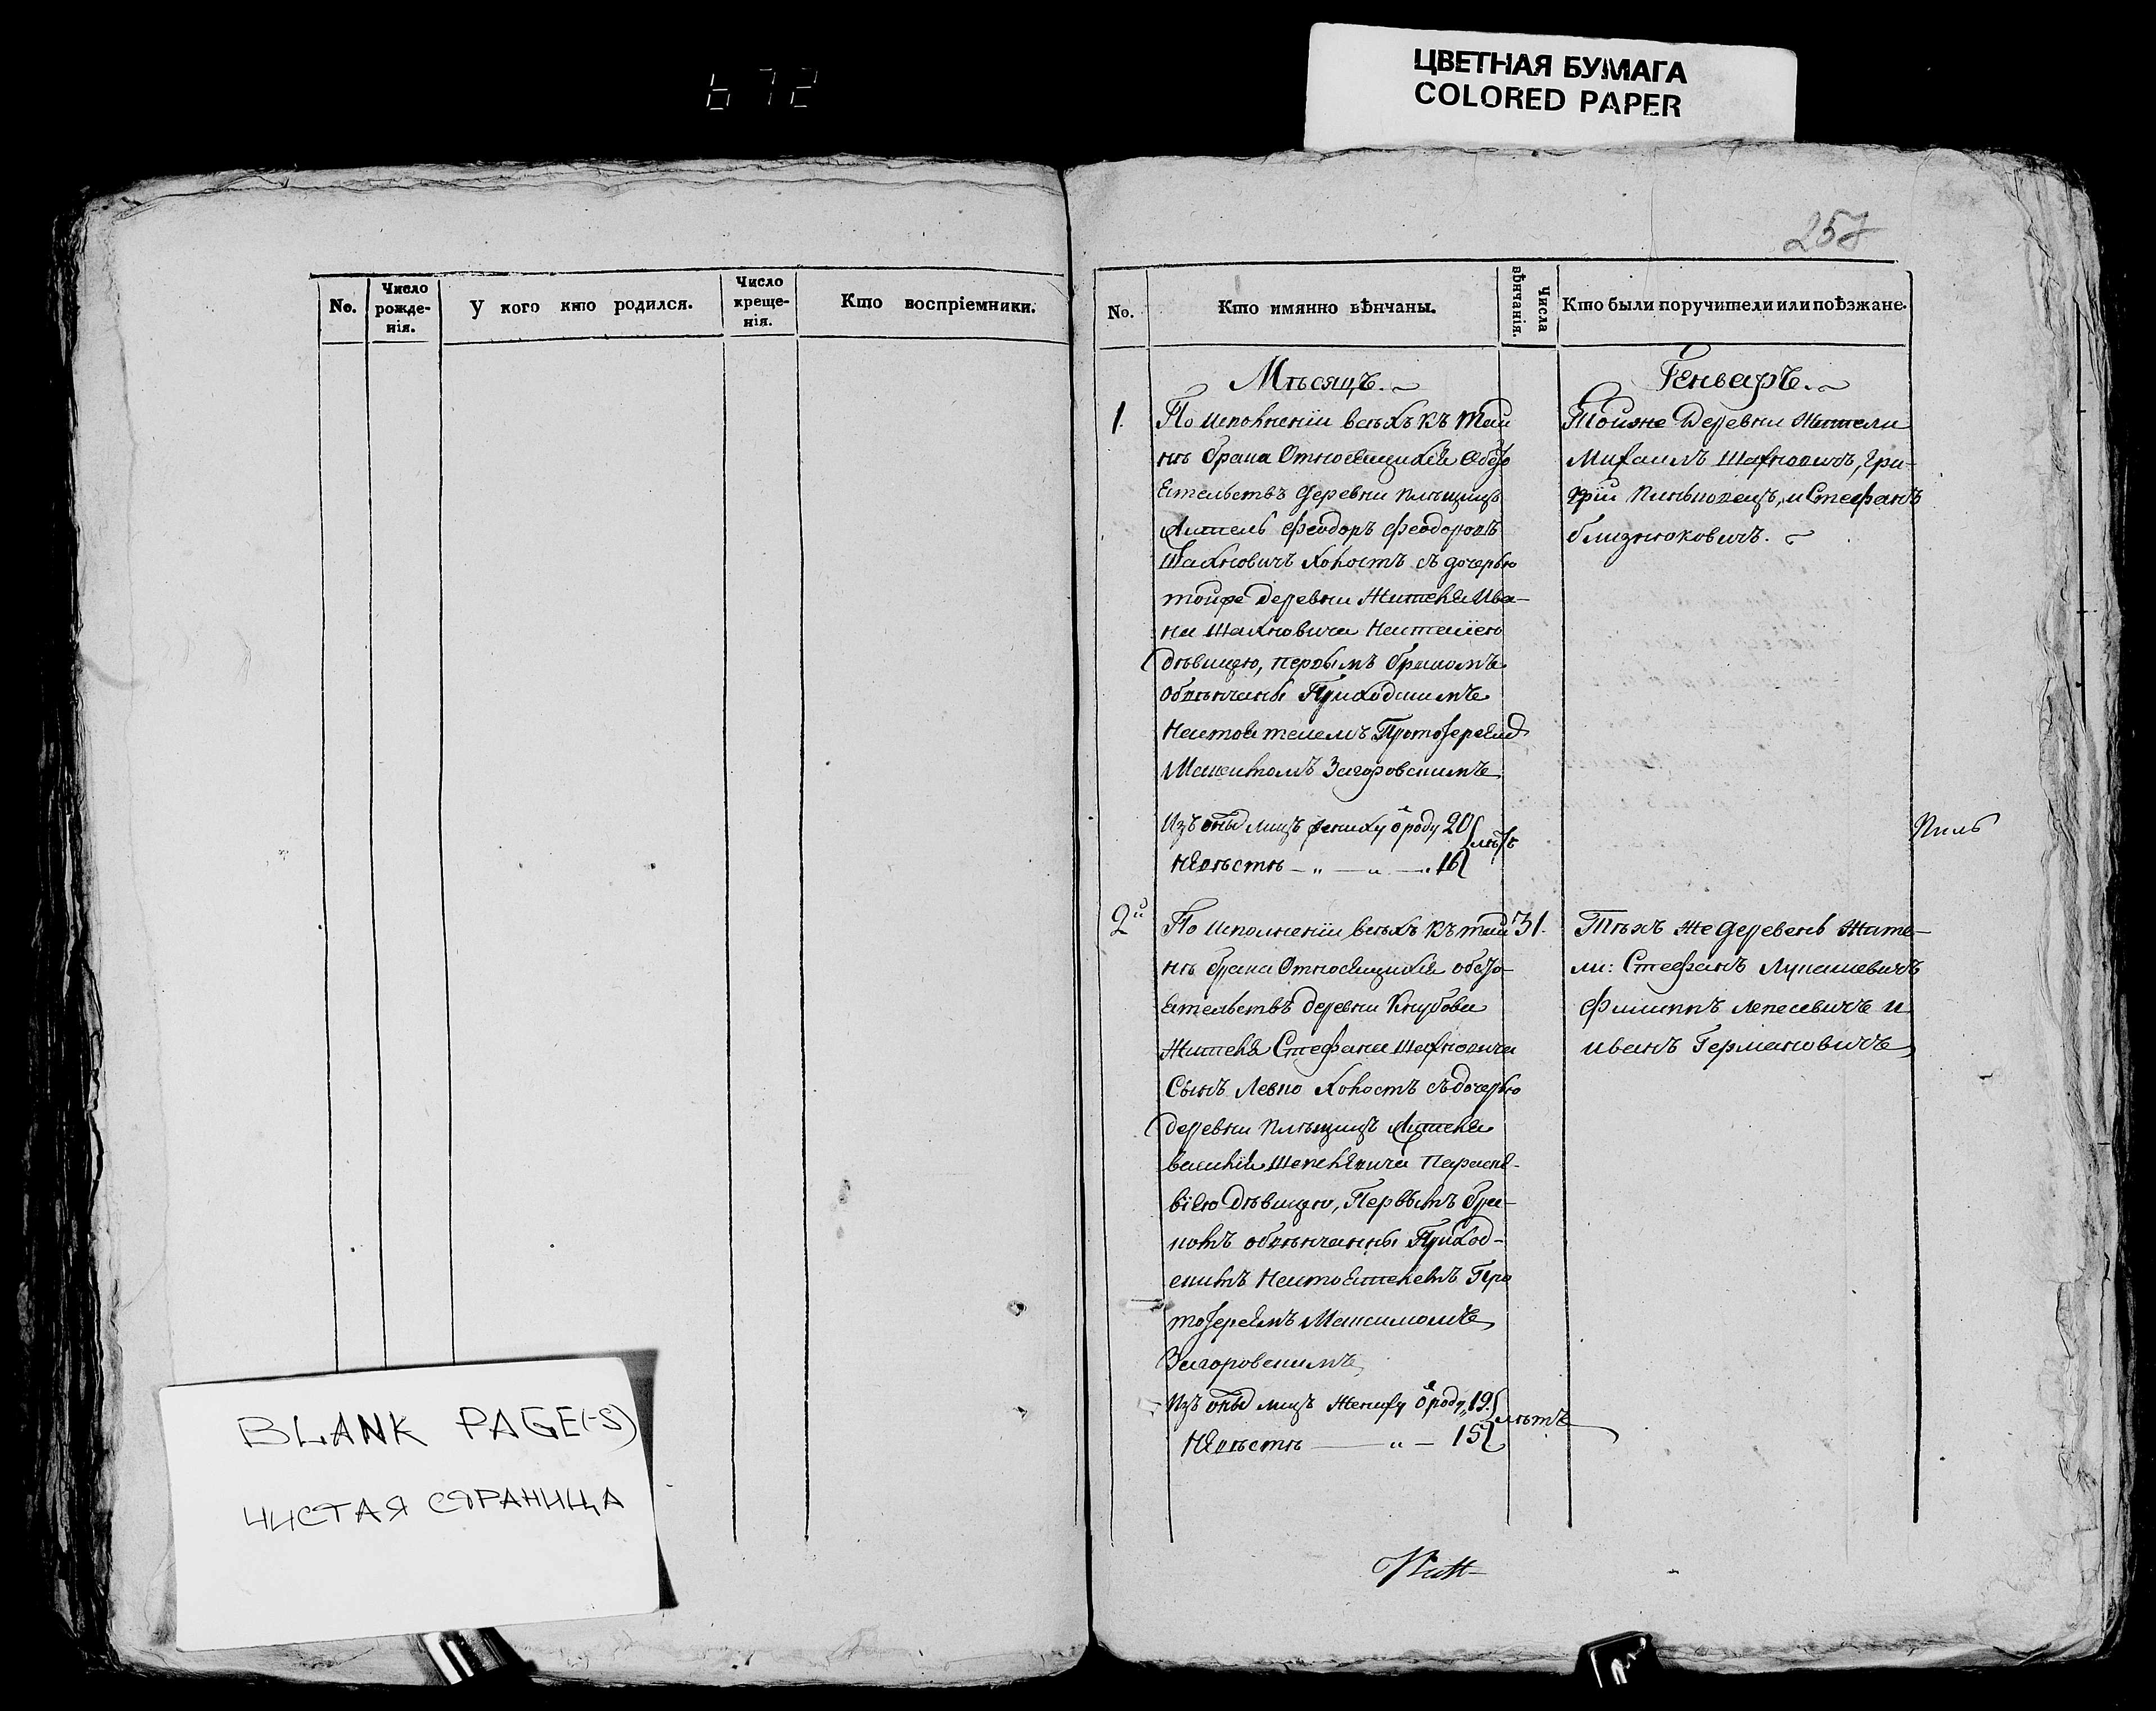 672
ЦВЕТНАЯ БУМАГА
COLORED PAPER
No.
Число рожде-нія.
У кого кто родился.
Число креще-нія.
Кто воспріемники.
BLANK PAGE(-S)
ЧИСТАЯ СТРАНИЦА
257
No.
Кто имянно вѣнчаны.
Числа вѣнчанія.
Кто были поручители или поѣзжане.
Мѣсяцъ.
Генварь.
1.
По исполненіи всѣхъ къ таи
нѣ брака относящихся обсто
ятельствъ деревни
житель Феодоръ Феодоровъ
Шахновичъ холостъ съ дочерью
тойже деревни жителя Ива-
на Шахновича Наталіею
дѣвицею, первымъ бракомъ
обвѣнчаны Приходскимъ
Настоятелемъ Протоіереемъ
Максимомъ Загоровскимъ
Изъ оных лицъ жениху ѿ роду 20 лѣтъ
Невѣстѣ — „ — „ — „ 16
Тойже деревни жители
Михаилъ Шахновичъ, Гри-
горій и Стефанъ
Близнюковичъ.
2й
По исполненіи всѣхъ къ таи
31.
нѣ брака относящихся обсто-
ятельствъ деревни
жителя Стефана Шахновича
сынъ Левко холостъ съ дочерью
деревни жителя
Василія Параске-
віею дѣвицею, Первымъ бра-
комъ обвѣнчанны Приход-
скимъ Настоятелемъ Про
тоіереемъ Максимомъ
Загоровскимъ
Изъ оных лицъ жениху ѿ роду 19 лѣтъ
Невѣстѣ — „ — 15
Тѣхъ же деревень жите-
ли: Стефанъ Лукашевичъ
Филиппъ и
Иванъ Германовичъ